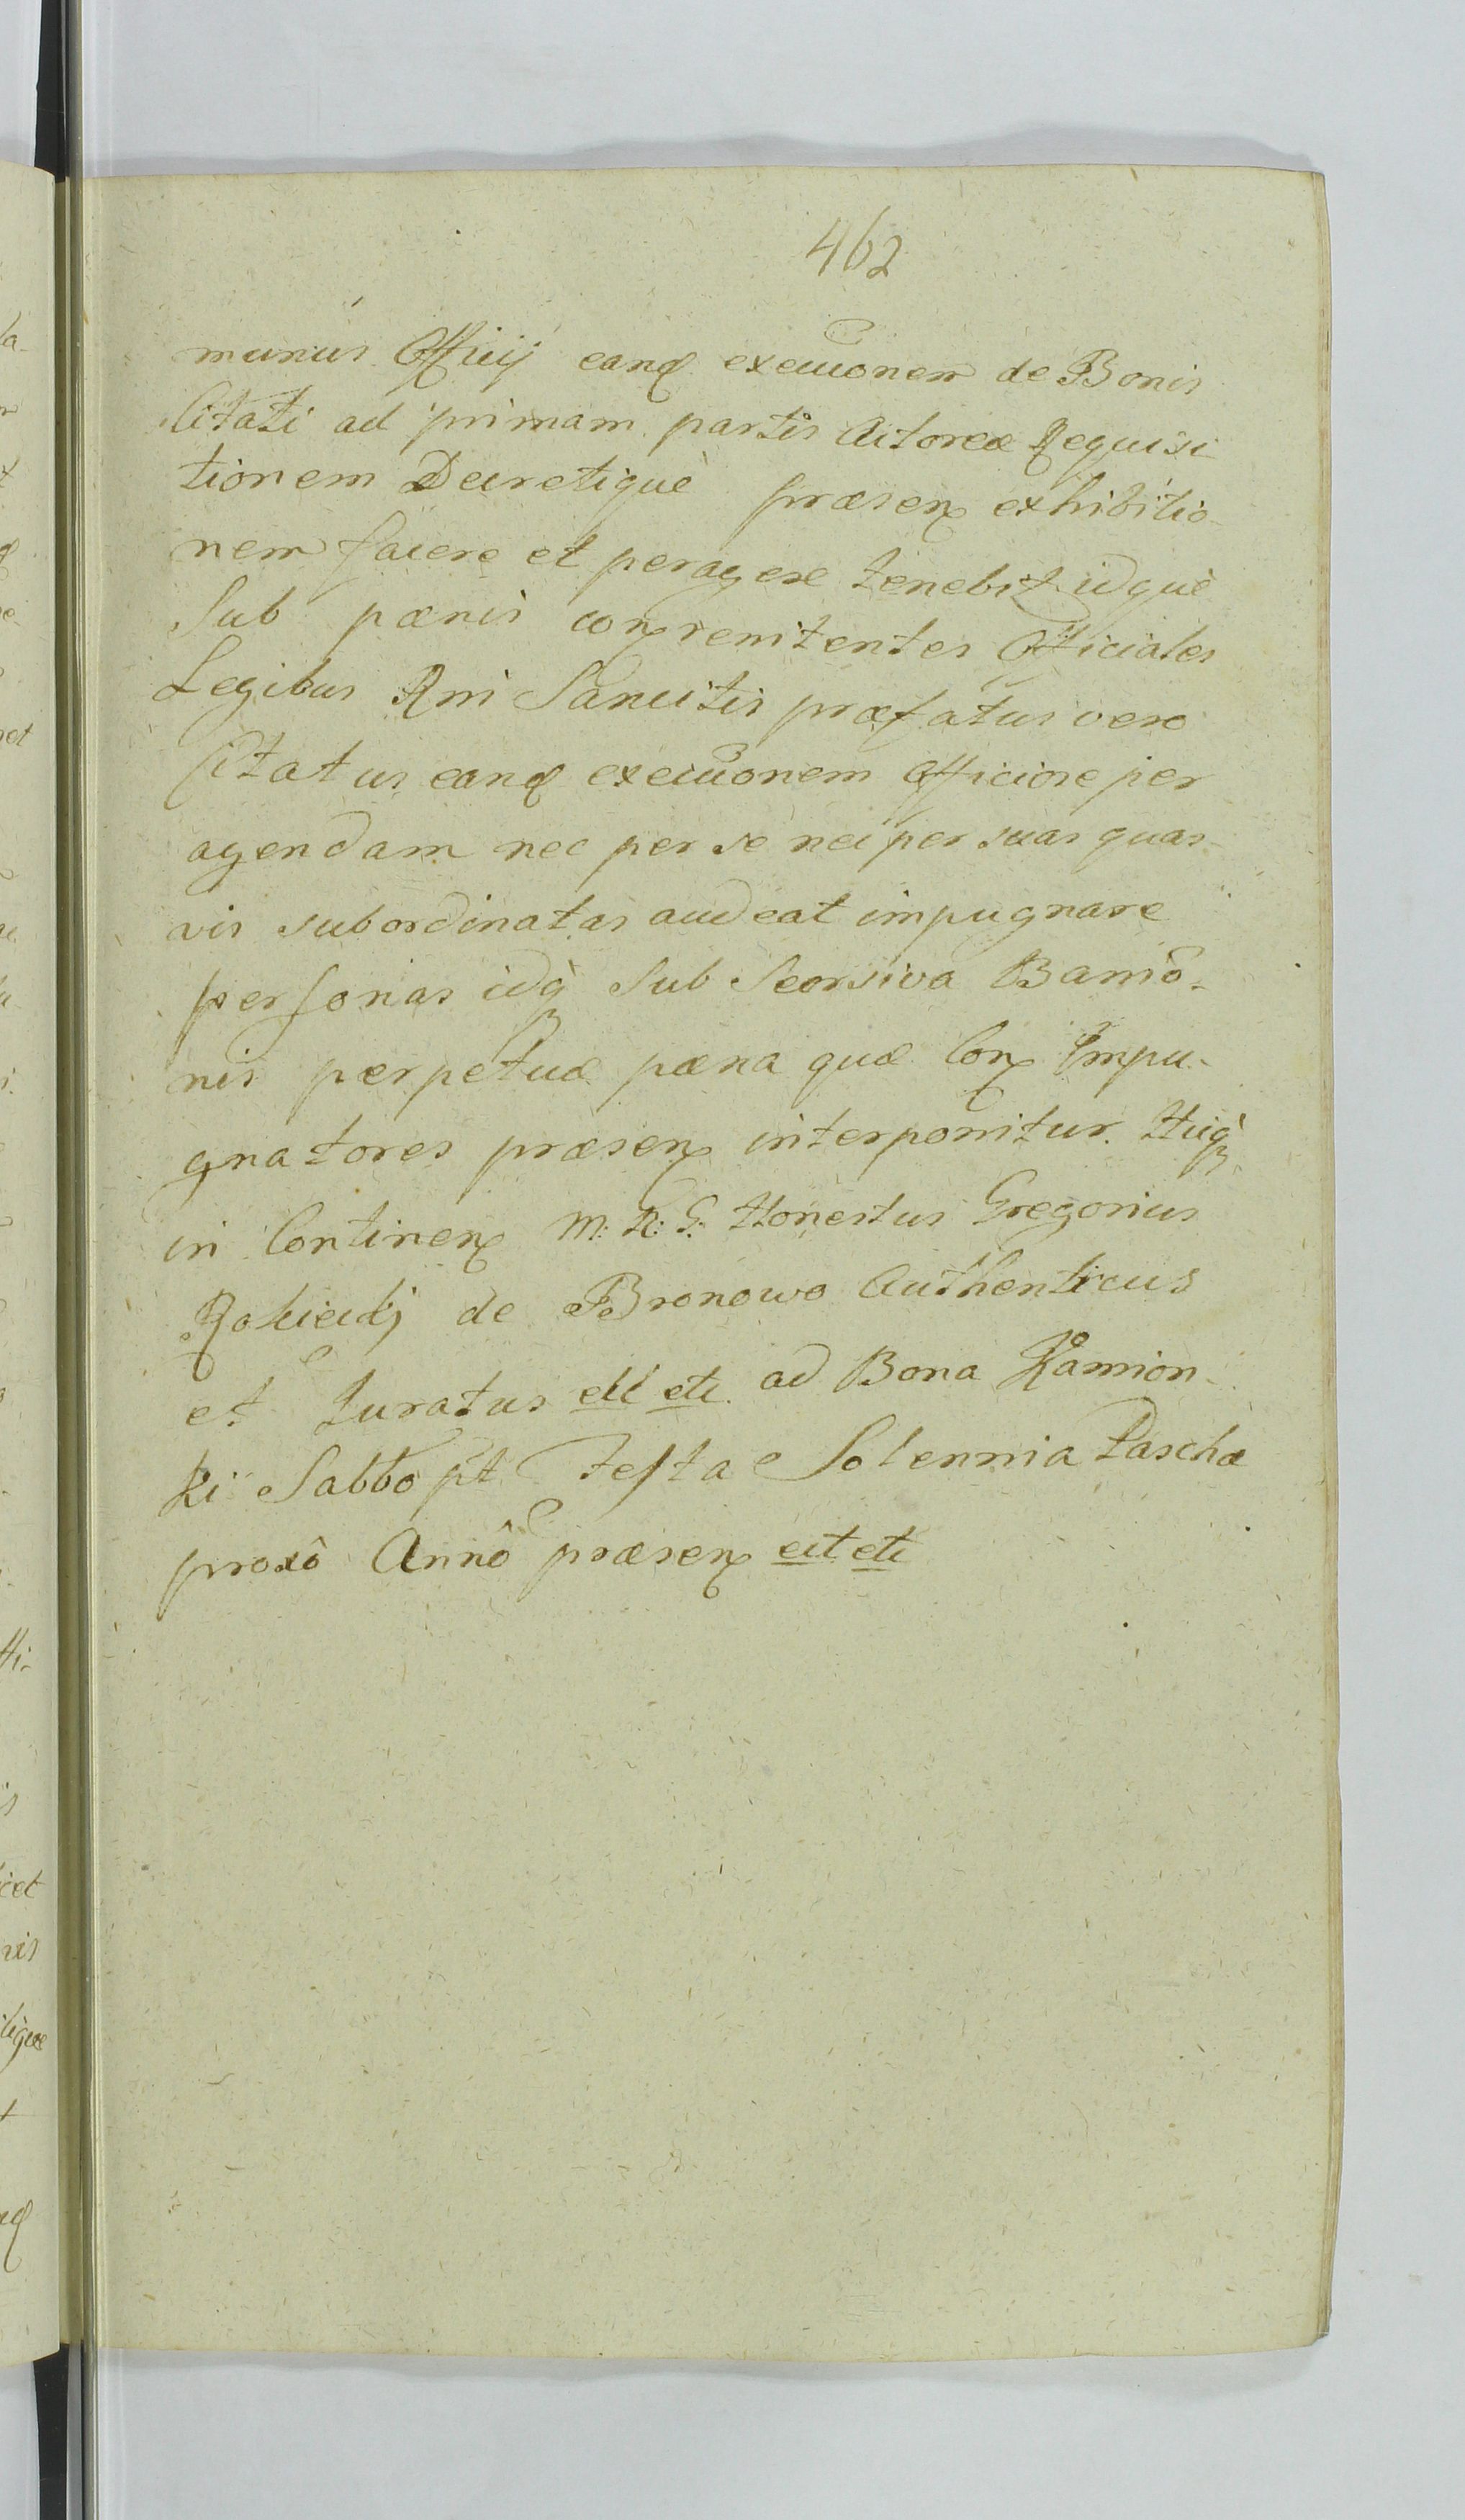 462
munus Officij eandꝫ execuõnem de Bonis
Citati ad primam partis Actoreæ Requisi
tionem Decretiquè præsenꝫ exhibitio-
nem facere et peragere tenebit idquè
Sub pænis conꝫ renitentes Officiales
Legibus Rni Sancitis præfatus vero
Citatus eandꝫ execuõnem officiose per
agendam nec per se nec per suas quas-
vis subordinatas audeat impugnare
personas idq̀ Sub Seorsiva Banniõ-
nis perpetuæ pæna quæ Conꝫ Impu-
gnatores præsenꝫ interponitur. Huicq̀
in Continenꝫ M: R: G: Honestus Gregorius
de Bronowo Authenticus
et Juratus etc etc. ad Bona Kamion-
ki Sabbo pt Festa Solennia Paschæ
proxô Annô præsenꝫ cit etc